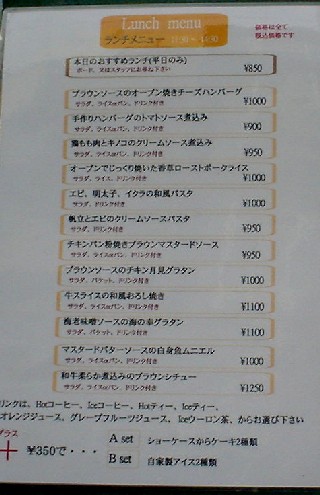 Lunch menu
ランチメニュー 11:30～14:30
価格は全て
税込価格です
本日のおすすめランチ(平日のみ)
ボード、又はスタッフにお尋ね下さい ¥850
ブラウンソースのオーブン焼きチーズハンバーグ
サラダ、ライスorパン、ドリンク付き ¥1000
手作りハンバーグのトマトソース煮込み
サラダ、ライスorパン、ドリンク付き ¥900
鶏もも肉とキノコのクリームソース煮込み
サラダ、ライスorパン、ドリンク付き ¥950
オーブンでじっくり焼いた香草ローストポークライス
サラダ、ライス、ドリンク付き ¥1000
エビ、明太子、イクラの和風パスタ
サラダ、ドリンク付き ¥1000
帆立とエビのクリームソースパスタ
サラダ、ドリンク付き ¥950
チキンパン粉焼きブラウンマスタードソース
サラダ、ライスorパン、ドリンク付き ¥950
ブラウンソースのチキン月見グラタン
サラダ、バケット、ドリンク付き ¥1000
牛スライスの和風おろし焼き
サラダ、ライスorパン、ドリンク付き ¥1100
海老味噌ソースの海の幸グラタン
サラダ、バケット、ドリンク付き ¥1100
マスタードバターソースの白身魚ムニエル
サラダ、ライスorパン、ドリンク付き ¥1000
和牛柔らか煮込みのブラウンシチュー
サラダ、ライスorパン、ドリンク付き ¥1250
リンクは、Hotコーヒー、Iceコーヒー、Hotティー、Iceティー、
オレンジジュース、グレープフルーツジュース、Iceウーロン茶、からお選び下さい
プラス
＋ ¥350で・・・ A set ショーケースからケーキ2種類
B set 自家製アイス2種類